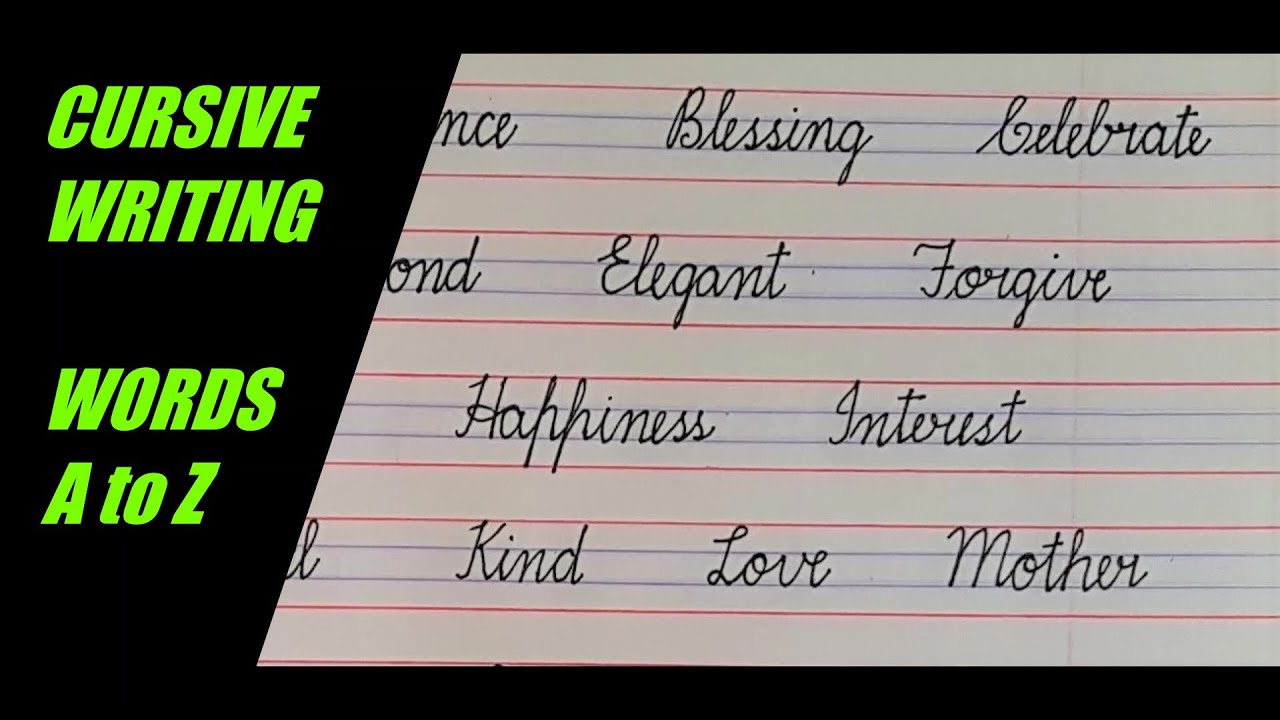 CURSIVE
WRITING
WORDS
A to Z
nce Blessing Celebrate
ond Elegant Forgive
Happiness Interest
l Kind Love Mother